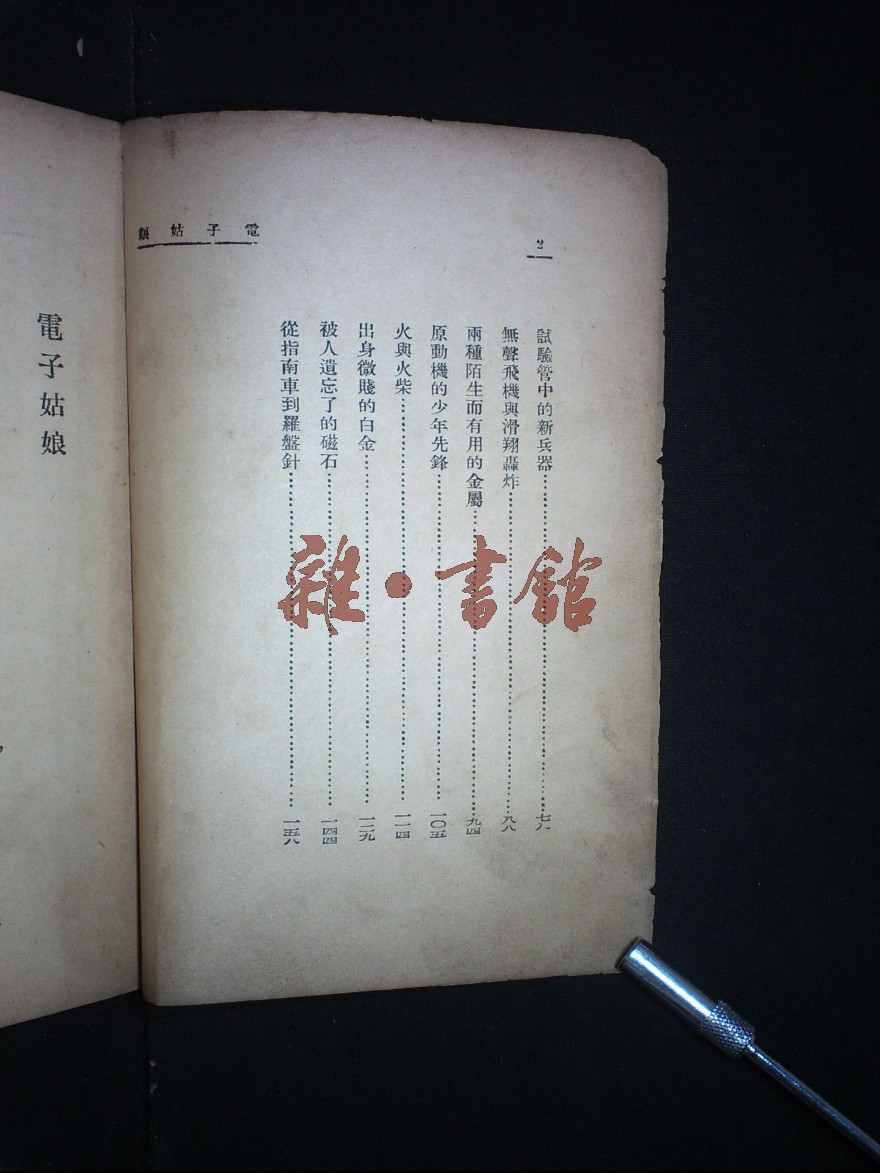 電子姑娘
2
試驗管中的新兵器……七八
無聲飛機與滑翔轟炸……八八
兩種陌生而有用的金屬……九四
原動機的少年先鋒……一〇五
火與火柴……一一四
出身微賤的白金……一二九
被人遺忘了的磁石……一四四
從指南車到羅盤針……一五八
電子姑娘
雜·書館